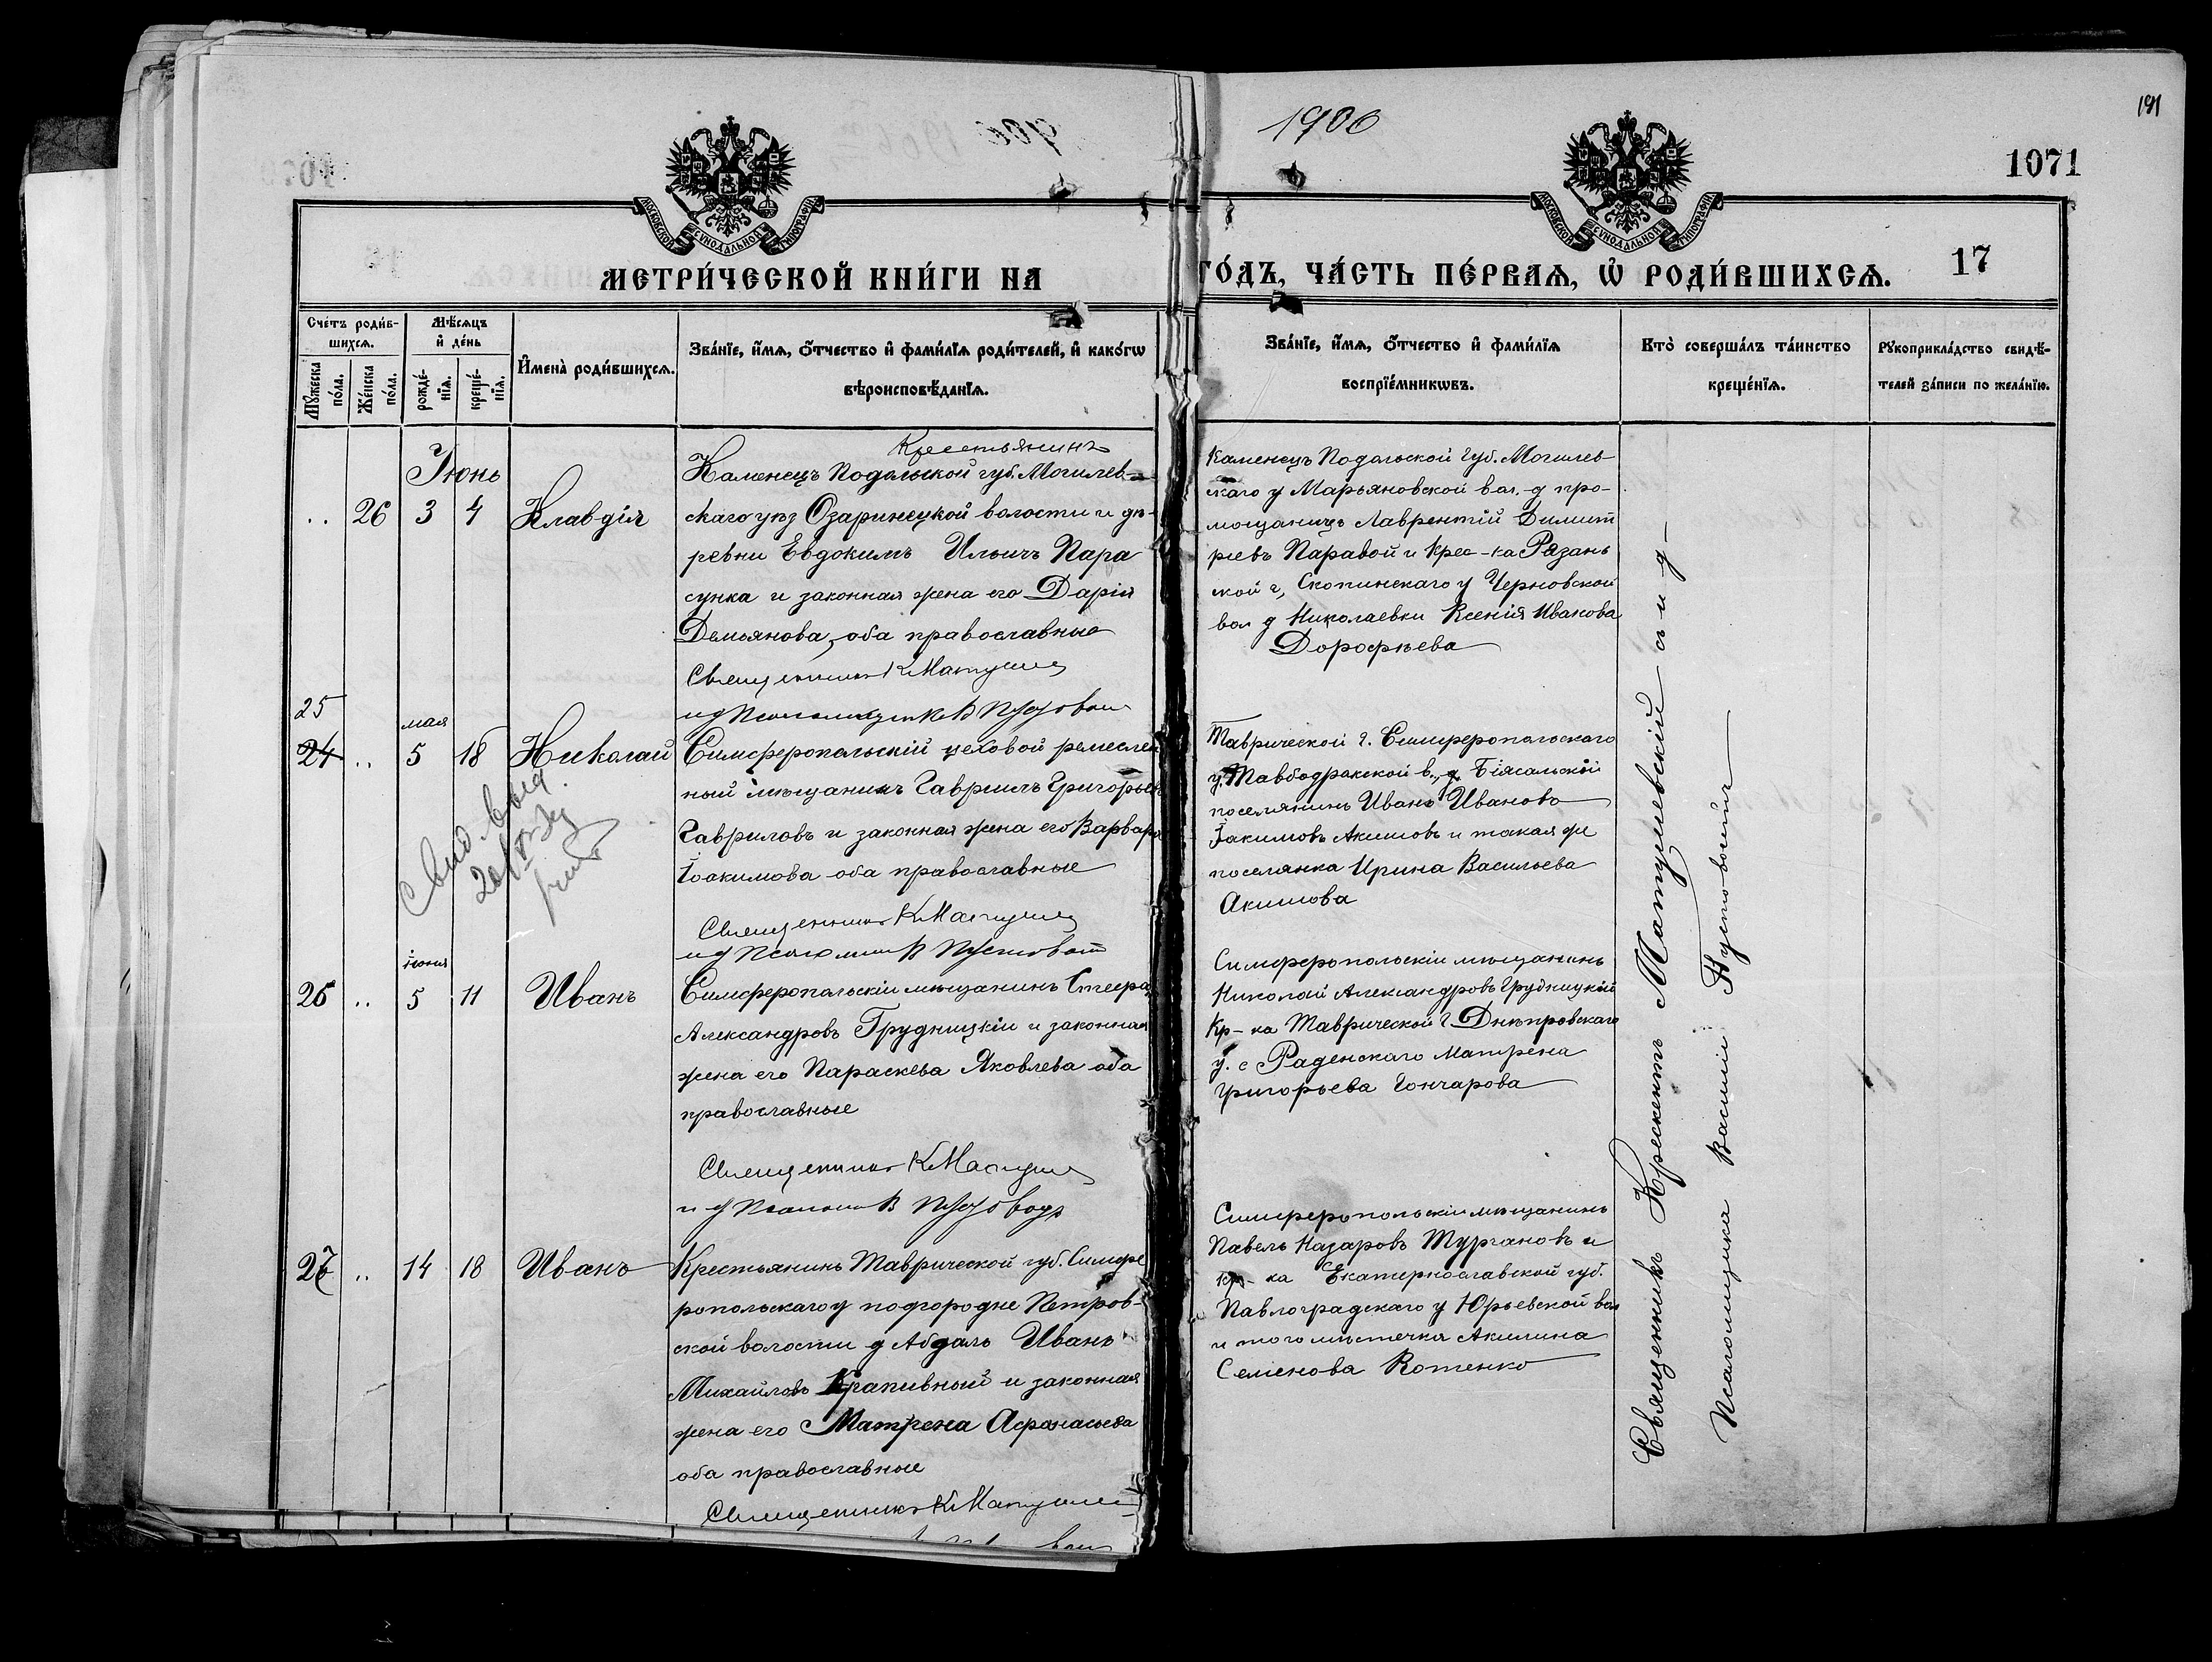 1906
191
1071
МОСКОВСКОЙ СѴНОДАЛЬНОЙ ТИПОГРАФІИ
МОСКОВСКОЙ СѴНОДАЛЬНОЙ ТИПОГРАФІИ
МЕТРИ́ЧЕСКОЙ КНИ́ГИ НА
ГО́ДЪ, ЧА́СТЬ ПЕ́РВАѦ, Ѡ҆ РОДИ́ВШИХСѦ.
17
Сче́тъ роди́в-
шихсѧ.
Мꙋ́жеска
по́ла.
Же́нска
по́ла.
Мѣ́сѧцъ
и҆ де́нь
рожде́-
нїѧ.
креще́-
нїѧ.
И҆мена̀ роди́вшихсѧ.
Зва́нїе, и҆́мѧ, ѻ҆́тчество и҆ фами́лїѧ роди́телей, и҆ како́гѡ
вѣроисповѣ́данїѧ.
Зва́нїе, и҆́мѧ, ѻ҆́тчество и҆ фами́лїѧ
воспрїе́мникѡвъ.
Кто̀ соверша́лъ та́инство
креще́нїѧ.
Рꙋкоприкла́дство свидѣ́-
телей за́писи по жела́нїю.
Іюнь
.. 26 3 4 Клавдія
Крестьянинъ
Каменецъ Подольской губ. Могилев-
скаго уѣз Озаринецкой волости и де-
ревни Евдокимъ Ильичъ Пара
сунка и законная жена его Дарія
Демьянова, оба православные
Священникъ К Матушев
и д Псаломщик В Пустовой
Каменецъ Подольской Губ. Могилев-
скаго у Марьяновской вол. д про-
мощаницъ Лаврентій Димит
ріевъ Паравой и Крес-ка Рязань
ской г, Скопинскаго у Черновской
вол д Николаевки Ксенія Иванова
Дорофѣева
25
24 ..
мая
5 18 Николай
Свид. выд.
Симферопольскій цеховой ремеслен
ный мѣщанинъ Гавріилъ Григорьев
Гавриловъ и законная жена его Варвара
Іоакимова оба православные
Священникъ К Матушев
и д Псаломщ В Пустовой
Таврической г. Симферопольскаго
у. Тавбодракской в., д. Біясальскій
поселянинъ Иванъ Ивановъ
Іакимовъ Акимовъ и такая же
поселянка Ирина Васильева
Акимова
26 ..
іюня
5 11 Иванъ
Симферопольскій мѣщанинъ Стефа
Александровъ Грудницкій и законная
жена его Параскева Яковлева оба
православные
Священникъ К Матушев
и д Псаломщ В Пустовой
Симферопольскій мѣщанинъ
Николай Александровъ Грудницкій
Кр-ка Таврической г. Днѣпровскаго
у. с Раденскаго Матрена
Григорьева Гончарова
27 .. 14 18 Иванъ
Крестьянинъ Таврической губ. Симфе
ропольскаго у подгородне Петров-
ской волости д Абдалъ Иванъ
Михайловъ Крапивный и законная
жена его Матрена Афанасьева
оба православные
Священникъ К Матушев
Симферопольскій мѣщанинъ
Павелъ Назаровъ Тургановъ и
кр-ка Екатеринославской губ.
Павлоградскаго у Юрьевской вол
и того мѣстечка Акилина
Семенова Котенко
Священникъ Крескентъ Матушевскій съ и д-
Псаломщика Василій Пустовойтъ